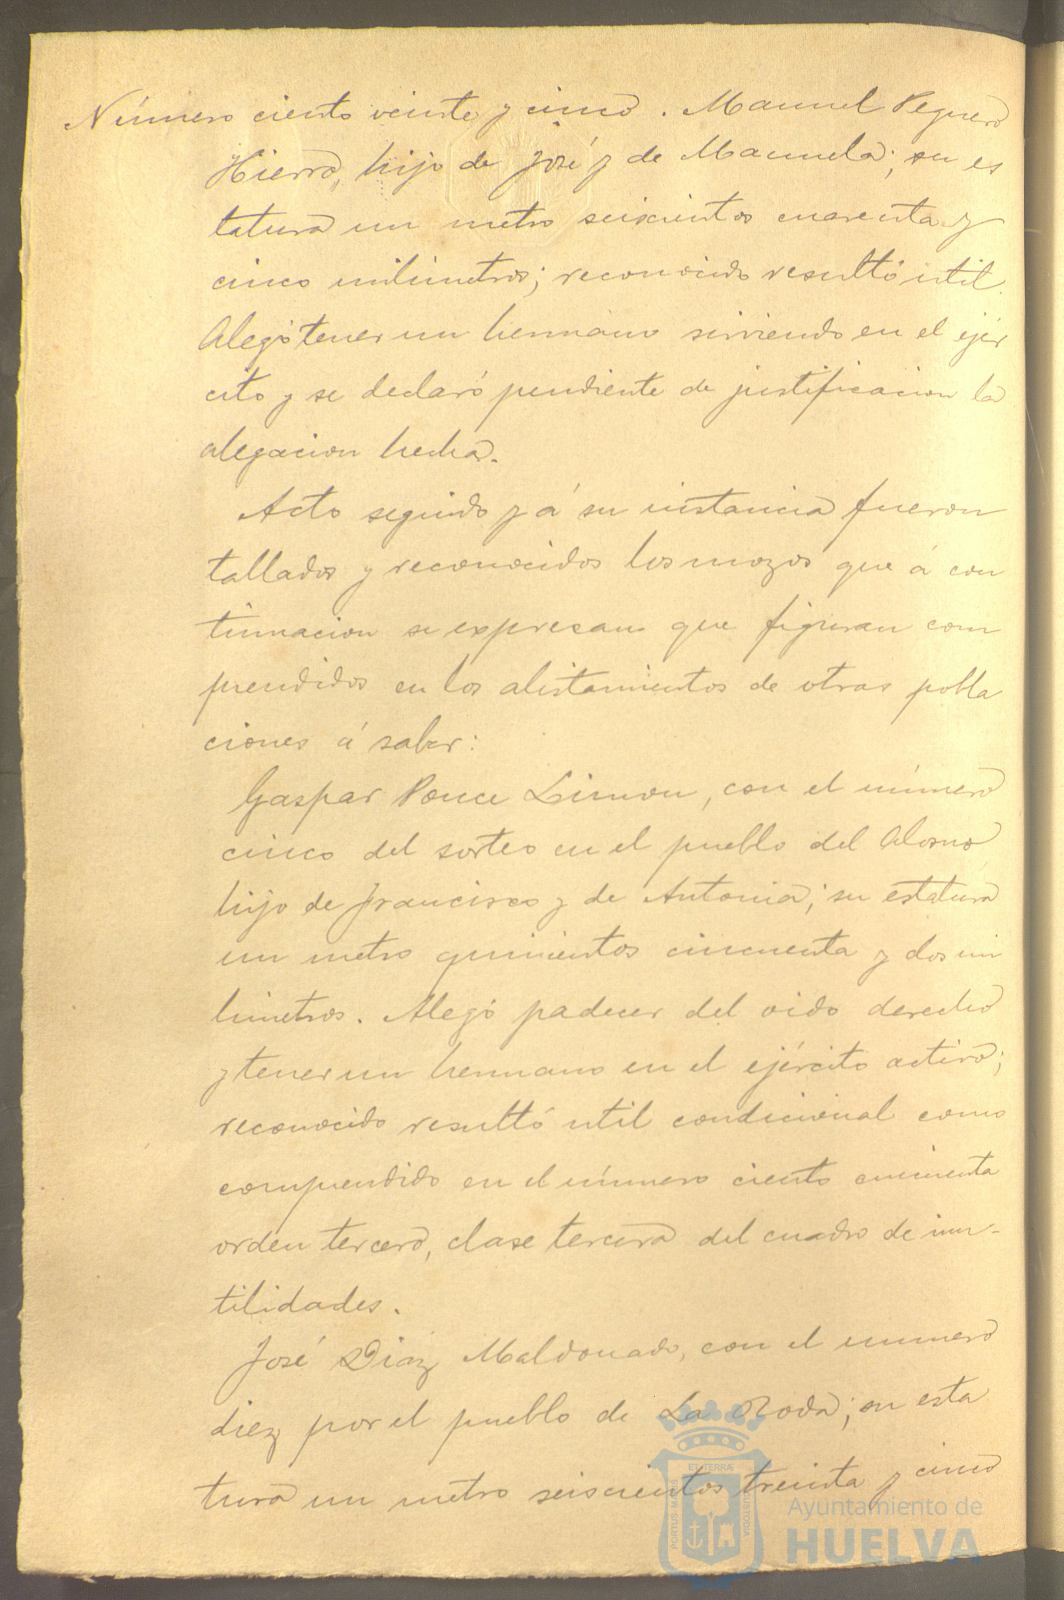 Número ciento veinte y cinco. Manuel Peguero
Hierro, hijo de José y de Manuela; su es
tatura un metro seiscientos cuarenta y
cinco milimetros; reconocido resultó util.
Alegó tener un hermano sirviendo en el ejér
cito y se declaró pendiente de justificacion la
alegacion hecha.
Acto seguido y á su instancia fueron
tallados y reconocidos los mozos que á con
tinuacion se expresan que figuran com
prendidos en los alistamientos de otras pobla
ciones á saber:
Gaspar Ponce Limon, con el número
cinco del sorteo en el pueblo del Alosno
hijo de Francisco y de Antonia; su estatura
un metro quinientos cincuenta y dos mi
limetros. Alegó padecer del oido derecho
y tener un hermano en el ejército activo;
reconocido resultó util condicional como
comprendido en el número ciento cincuenta
orden tercero, clase tercera del cuadro de inu-
tilidades.
José Diaz Maldonado, con el numero
diez por el pueblo de La Roda; su esta
tura un metro seiscientos treinta y cinco
ET TERRÆ
PORTUS MARIS
CUSTODIA
Ayuntamiento de
HUELVA